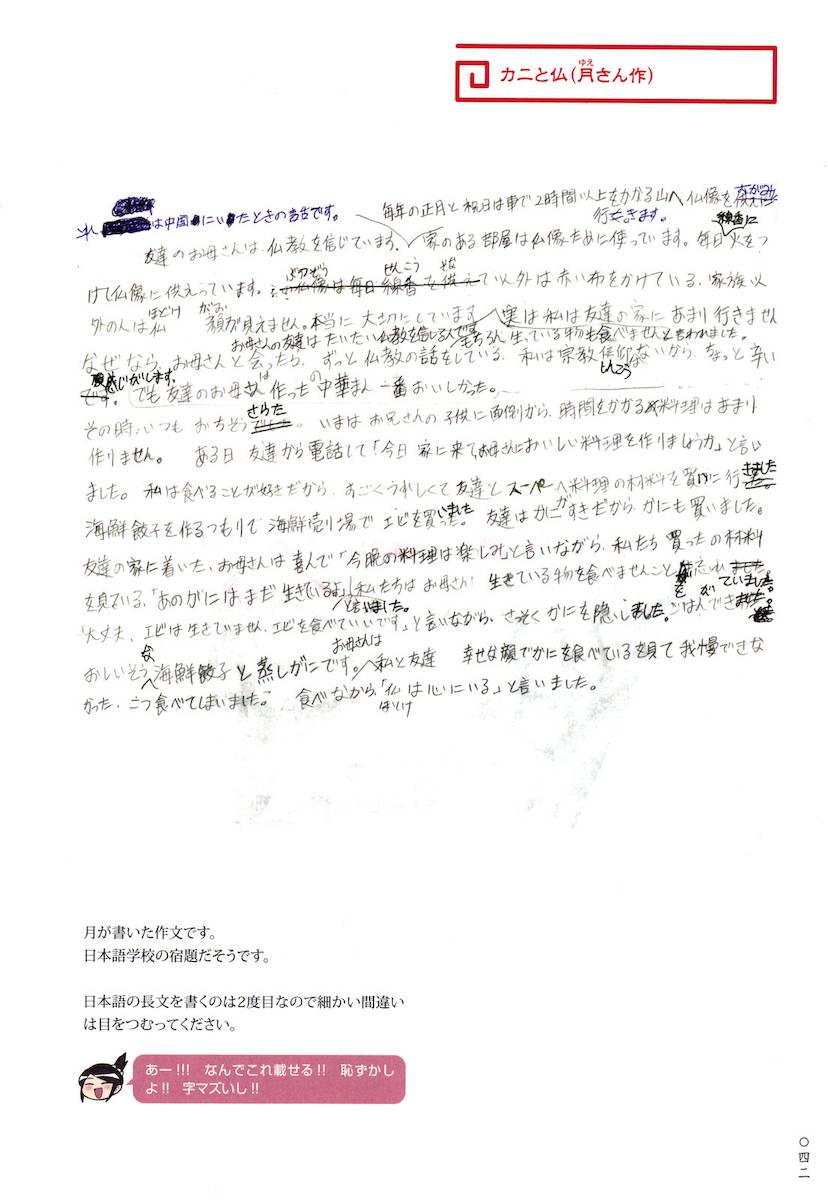 カニと仏(月さん作)
ゆえ
は中国にいたときの言古です。
毎年の正月と祝日は車で2時間以上をかかる山へ仏像を
おがみに
行きます。
線香に
友達のお母さんは、仏教を信じています、家のある部屋は仏像ために使っています。毎日火をつ
ぶつぞう せんこう そな
けし仏像に供えっています。仏像は毎日線香を供えて以外は赤い布をかけている、家族以
ほとけ がお
外の人は仏 顔が見えません。本当に大切にしています。実は私は友達の家にあまり行きません
お母さんの友達はだいたい仏教を信じるんです。もちろん生っている物も食べませんと言われました。
なぜなら、お母さんと会ったら、ずっと仏教の話をしている、私は宗教信仰ないから、ちょっと辛い
感じがします。
しんこう
です。でも友達のお母さんは作ったの中華まん一番おいしかった。
その時、いつもおちそうさらた。いまはお兄さんの子供に面倒から、時間をかかる料理はあまり
作りません。 ある日 友達から電話して「今日家に来てお母さんにおいしい料理を作りましょうか」と言い
ました。私は食べることが好きだから、すごくうれしくて友達とスーパーへ料理の材料を買いに行きました
海鮮餃子を作るつもりで海鮮売り場でエビを買いました。友達はかにがすきだから、かにも買いました。
友達の家に着いた、お母さんは喜んで「今晩の料理は楽しみ」と言いながら、私たち買ったの材料
を見ている、「あのかにはまだ生きているよ」私たちはお母さんが生きている物を食べませんことを忘れていました。
と言いました。
「大丈夫、エビは生きていません、エビを食べていいです」と言いながら、さっそくかにを隠しました。ごはんできました。
お母さんは
おいしいそうな海鮮餃子と蒸しがにです。私と友達 幸せな顔でかにを食べているを見て我慢できな
かった、二つ食べてしまいました。 食べながら「仏は心にいる」と言いました。
ほとけ
月が書いた作文です。
日本語学校の宿題だそうです。
日本語の長文を書くのは2度目なので細かい間違い
は目をつむってください。
あー!!! なんでこれ載せる!! 恥ずかし
よ!! 字マズいし!!
〇四二